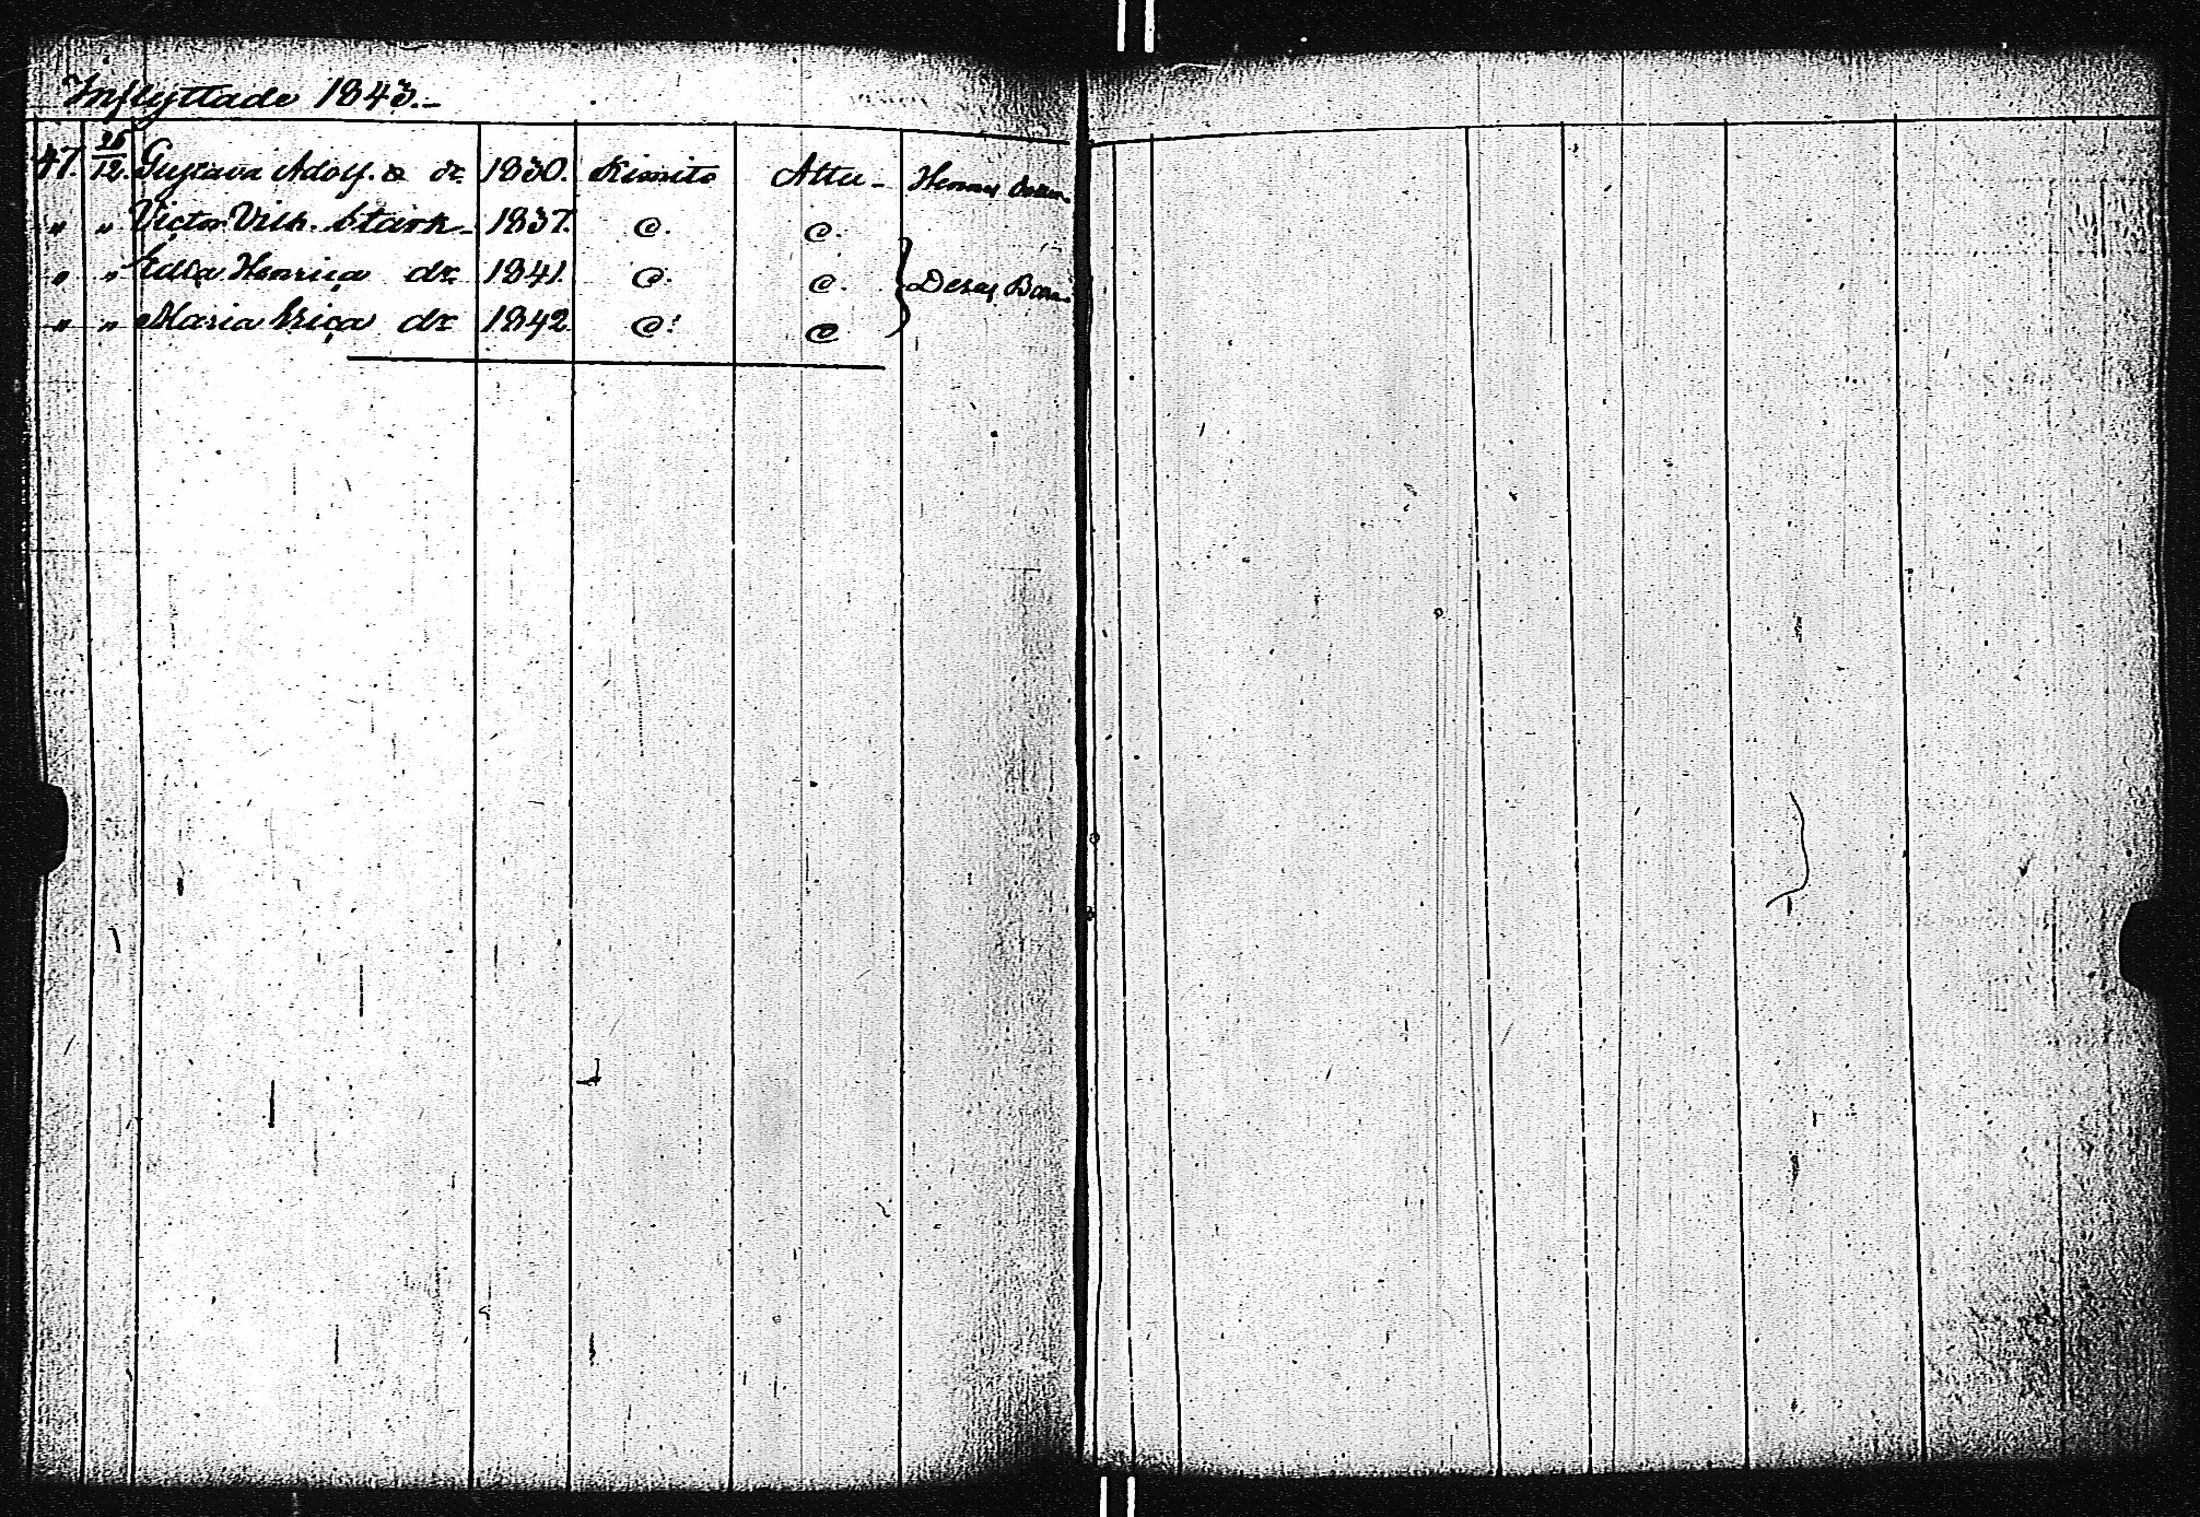 Inflyttade 1843.-
47. 26/12. Gustava Adolf. dr 1830. Kimito Attu- Hennes
" " Victor Vilh. Stark- 1837. @. @.
" " Edla Henrica dr 1841. @. @. Deras Barn.
" " Maria Erica dr 1842. @. @